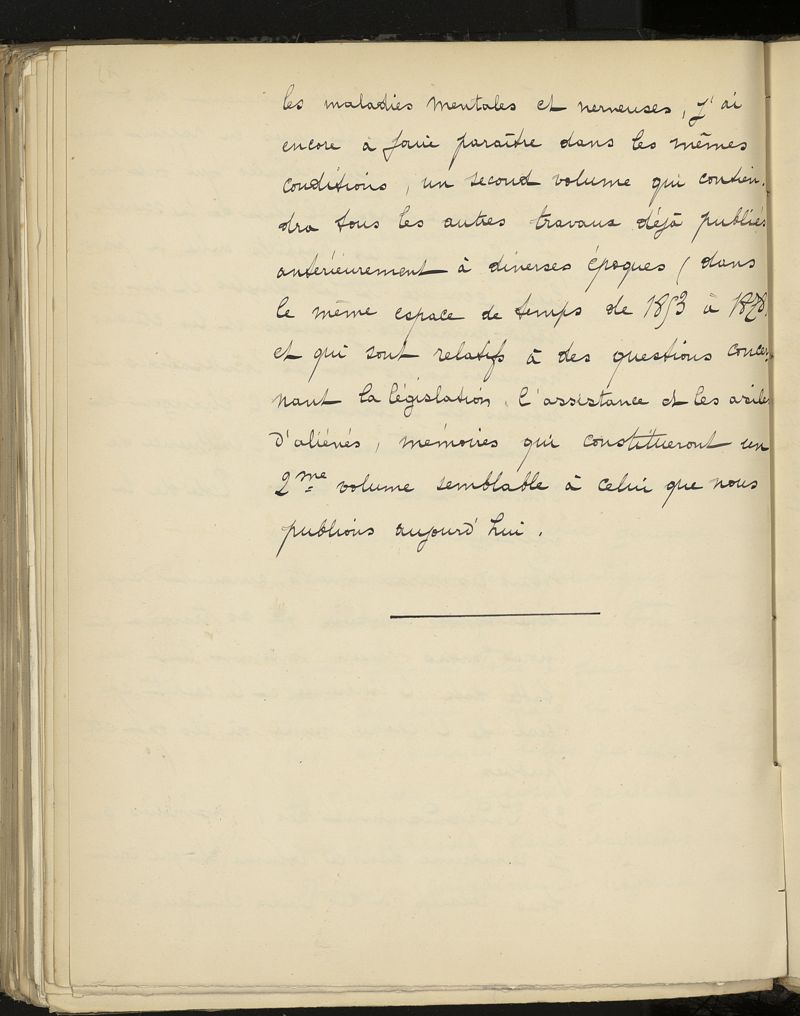 les maladies mentales et nerveuses, j'ai
encore à faire paraître dans les mêmes
conditions, un second volume qui contien-
dra tous les autres travaux déjà publiés
antérieurement à diverses époques (dans
le même espace de temps de 1853 à 1878)
et qui sont relatifs à des questions concer-
nant la législation, l'assistance et les asiles
d'aliénés, mémoires qui constitueront un
2me volume semblable à celui que nous
publions aujourd'hui.